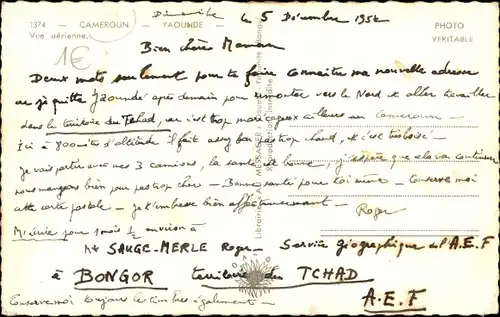 1374 - CAMEROUN - YAOUNDE -
Vue aérienne.
PHOTO
VERITABLE
1€
Dimanche le 5 Décembre 1954
Bien chère Maman
Deux mots seulement pour te faire connaitre ma nouvelle adresse
car je quitte Yaoundé après demain pour remonter vers le Nord et aller travailler
dans le territoire du Tchad, car c'est trop ailleurs au Cameroun -
Ici à 800 mètres d'altitude il fait assez bon pas trop chaud, et c'est
Je vais partir avec mes 3 camions, la santé est bonne, j'espère que cela va continuer
nous mangeons bien pour pas trop cher - Bonne santé pour toi même - Conserve moi
cette carte postale - je t'embrasse bien affectueusement -
Roger
M'écrire pour 1 mois 1/2 environ à
Mr SAUGE-MERLE Roger - Service géographique de l'A.E.F
à BONGOR territoire du TCHAD
A.E.F
Conserve moi toujours les timbres également -